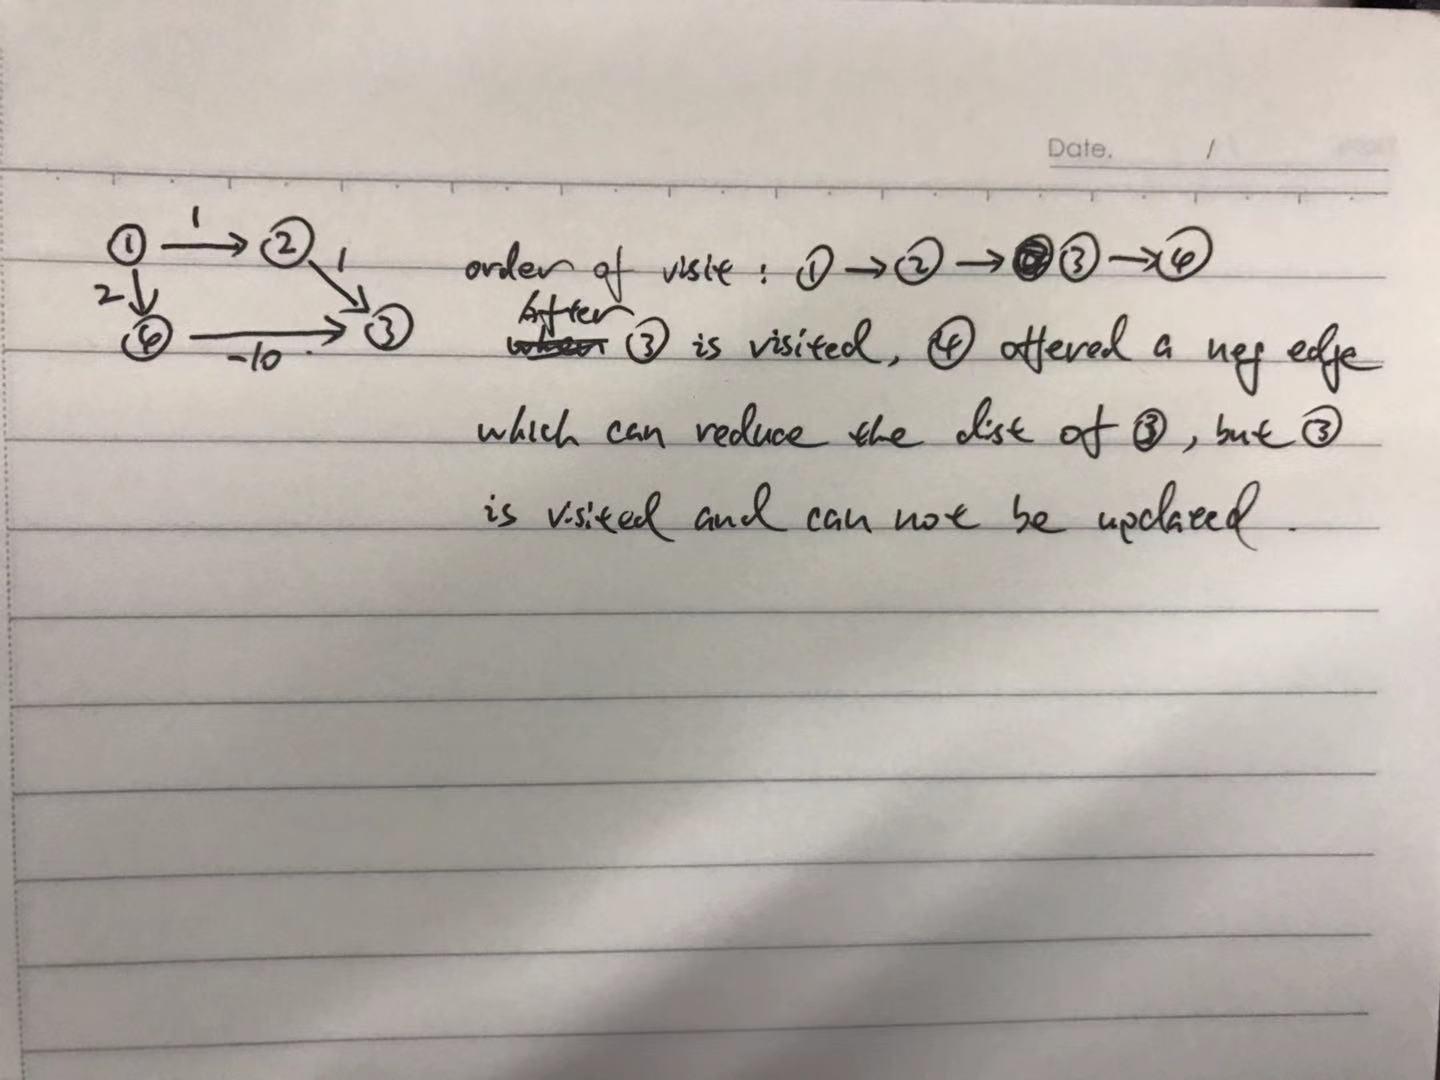 Date. /
① 1 ② 1
order of visit : ① → ② → ③ → ④
2
After
④ -10 ③
③ is visited, ④ offered a neg edge
which can reduce the dist of ③, but ③
is visited and can not be updated.